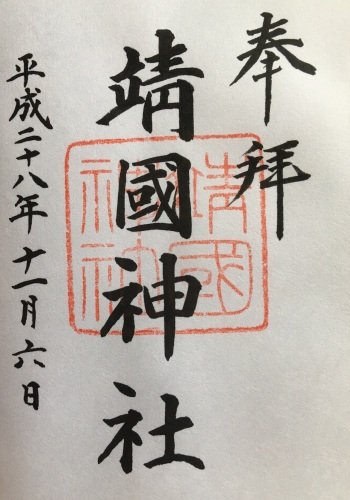 奉拝
靖國神社
靖國神社
平成二十八年十一月六日